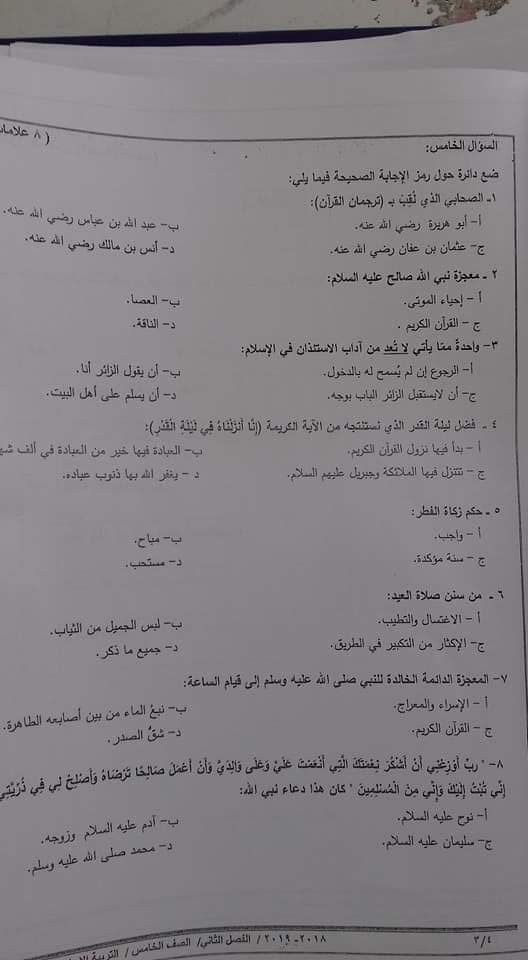 ( ٨ علامات
السؤال الخامس:
ضع دائرة حول رمز الإجابة الصحيحة فيما يلي:
١- الصحابي الذي لُقِّبَ بـ (ترجمان القرآن):
أ- أبو هريرة رضي الله عنه. ب- عبد الله بن عباس رضي الله عنه.
ج- عثمان بن عفان رضي الله عنه. د- أنس بن مالك رضي الله عنه.
٢ - معجزة نبي الله صالح عليه السلام:
أ - إحياء الموتى. ب- العصا.
ج - القرآن الكريم . د- الناقة.
٣- واحدةٌ ممّا يأتي لا تُعد من آداب الاستئذان في الإسلام:
أ- الرجوع إن لم يُسمح له بالدخول. ب- أن يقول الزائر أنا.
ج- أن لايستقبل الزائر الباب بوجه. د- أن يسلم على أهل البيت.
٤ - فضل ليلة القدر الذي نستنتجه من الآية الكريمة (إِنَّا أَنزَلْنَاهُ فِي لَيْلَةِ الْقَدْرِ):
أ - بدأ فيها نزول القرآن الكريم. ب- العبادة فيها خير من العبادة في ألف شهر
ج - تتنزل فيها الملائكة وجبريل عليهم السلام. د - يغفر الله بها ذنوب عباده.
٥ - حكم زكاة الفطر:
أ - واجب. ب- مباح.
ج - سنة مؤكدة. د- مستحب.
٦ - من سنن صلاة العيد:
أ - الاغتسال والتطيب. ب- لبس الجميل من الثياب.
ج- الإكثار من التكبير في الطريق. د- جميع ما ذكر.
٧- المعجزة الدائمة الخالدة للنبي صلى الله عليه وسلم إلى قيام الساعة:
أ - الإسراء والمعراج. ب- نبعُ الماء من بين أصابعه الطاهرة.
ج - القرآن الكريم. د- شقُّ الصدر.
٨- " ربِّ أَوْزِعْنِي أَنْ أَشْكُرَ نِعْمَتَكَ الَّتِي أَنْعَمْتَ عَلَيَّ وَعَلَى وَالِدَيَّ وَأَنْ أَعْمَلَ صَالِحًا تَرْضَاهُ وَأَصْلِحْ لِي فِي ذُرِّيَّتِي
إِنِّي تُبْتُ إِلَيْكَ وَإِنِّي مِنَ الْمُسْلِمِينَ " كان هذا دعاء نبي الله:
أ- نوح عليه السلام. ب- آدم عليه السلام وزوجه.
ج- سليمان عليه السلام. د- محمد صلى الله عليه وسلم.
٣/٤ ٢٠١٨-٢٠١٩ / الفصل الثاني/ الصف الخامس / التربية